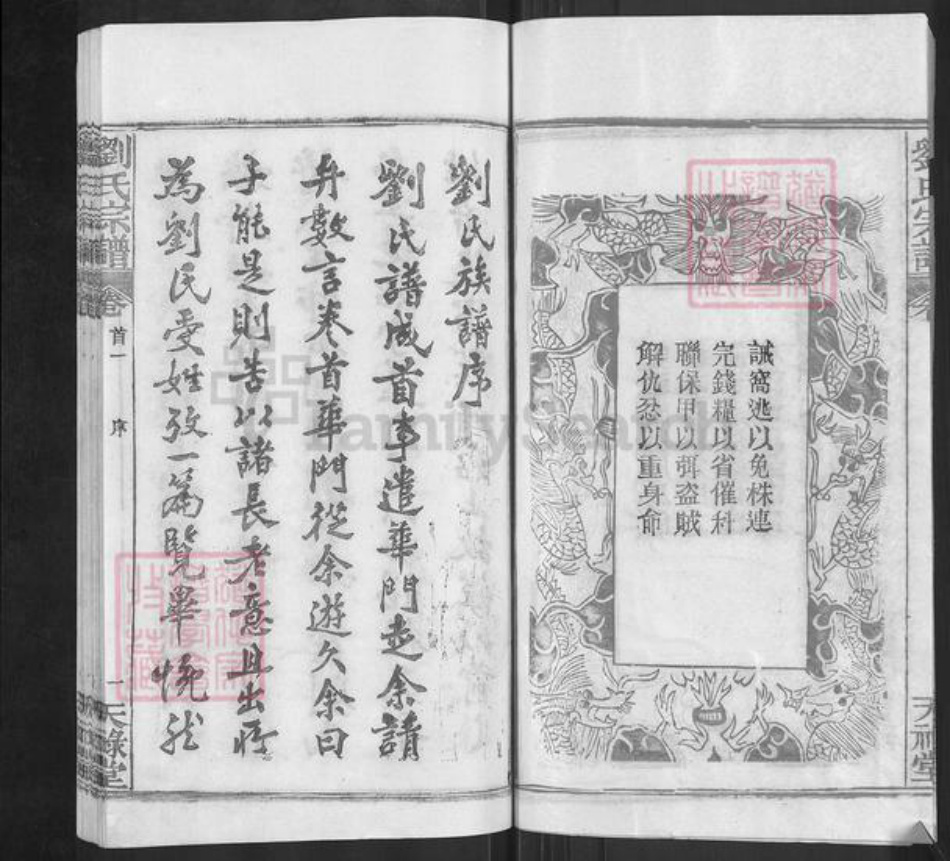 誡窩逃以免株連
完錢糧以省催科
聯保甲以弭盗賊
解仇忿以重身命
劉氏族譜序
劉氏譜成首事遣華門走余請
弁數言卷首華門從余遊久余曰
子能是則苦以諸長老意且出所
為劉氏受姓攷一篇覽畢恍然
劉氏宗譜
卷
首一
序
一
天祿堂
FamilySearch